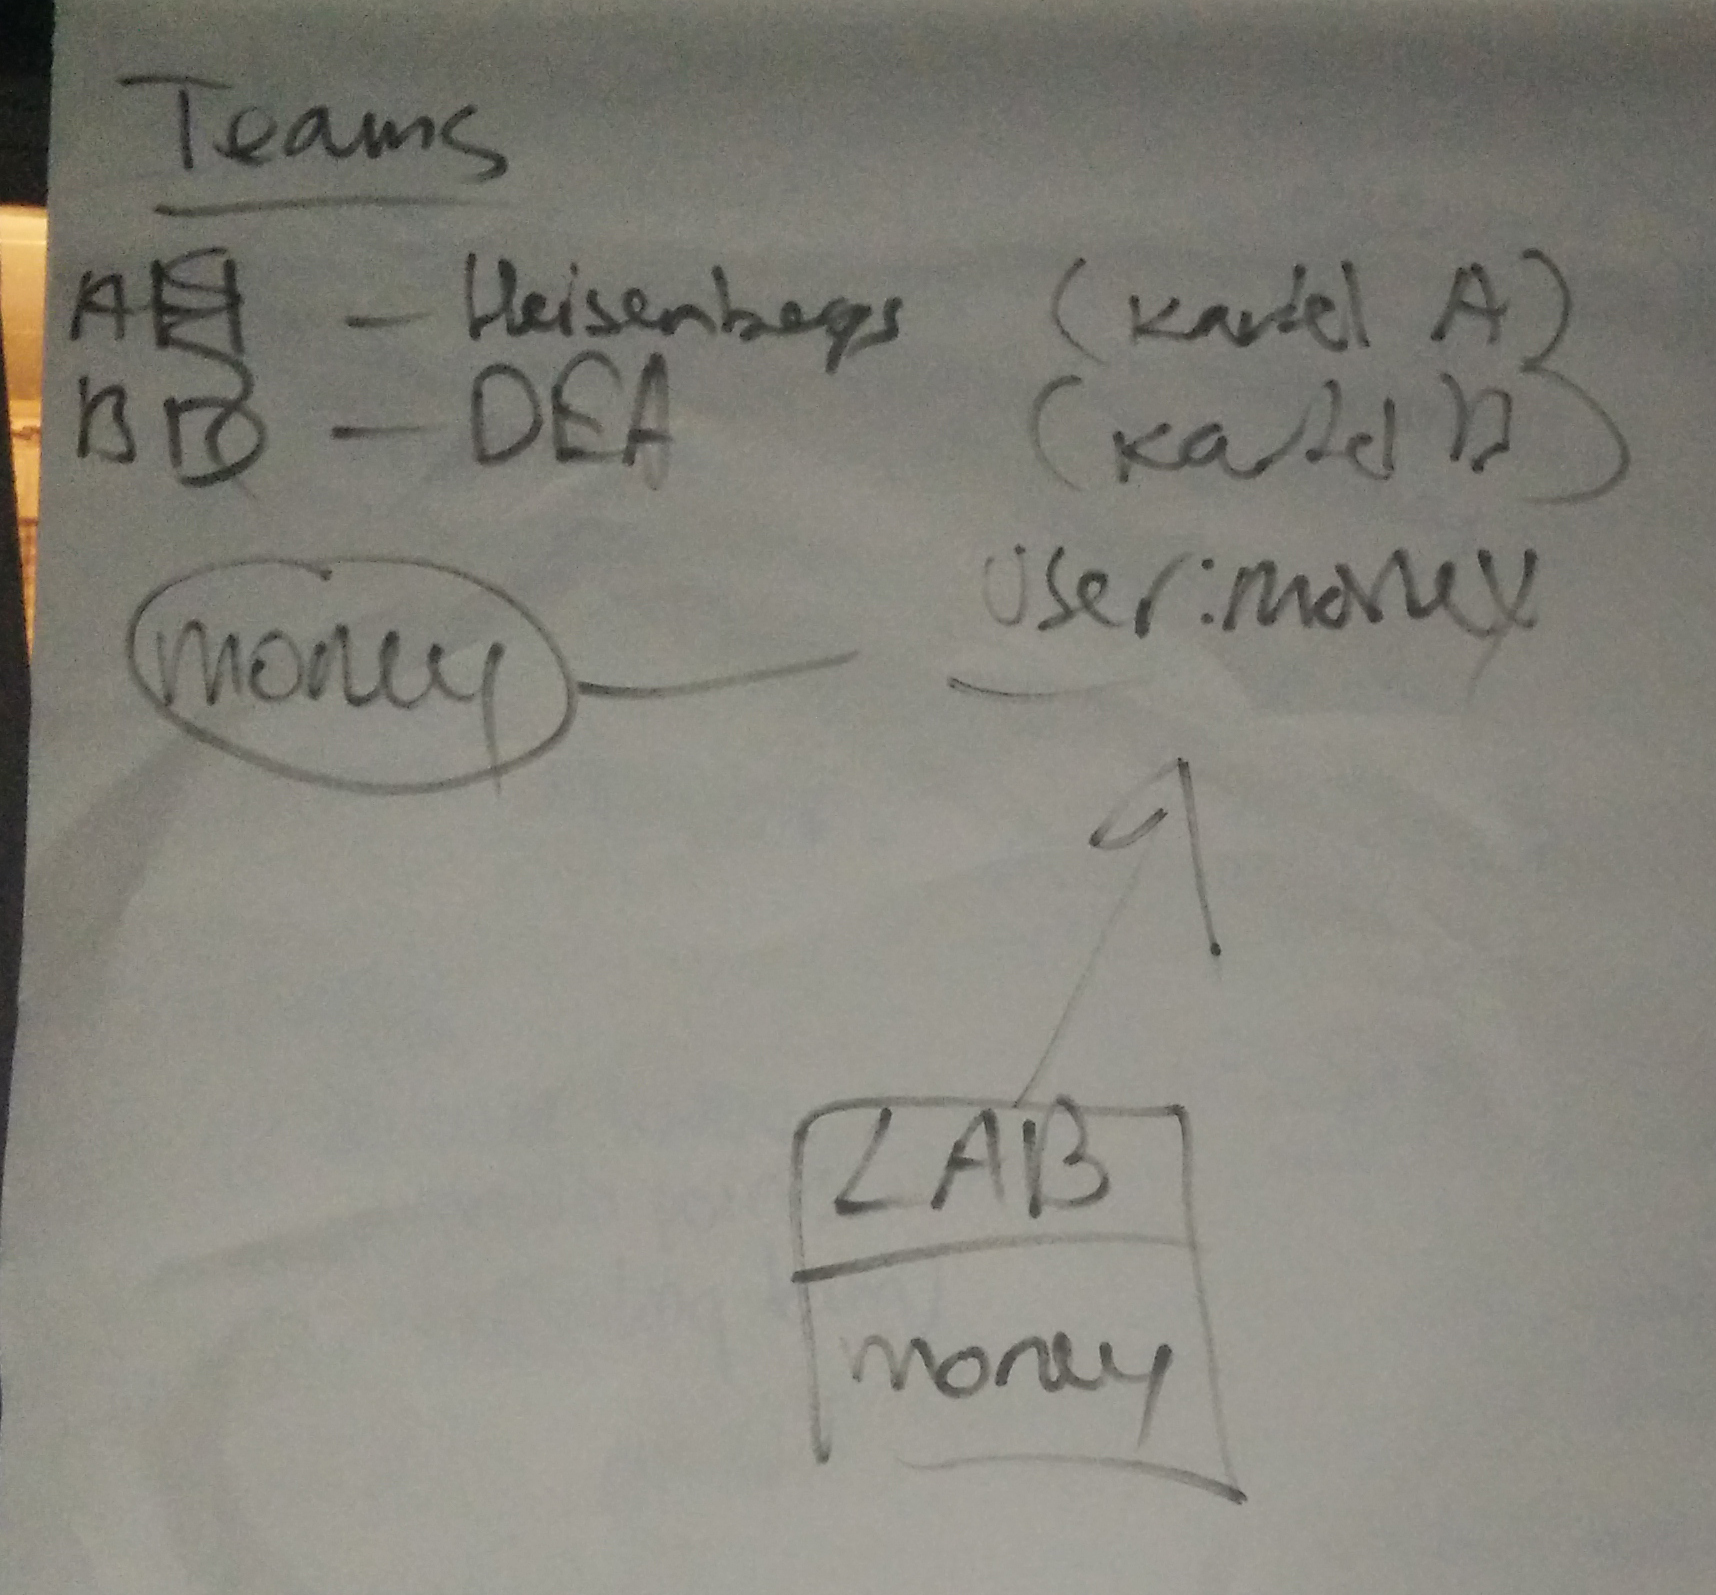 Teams
A - Heisenbergs (Kartel A)
B - DEA (Kartel B)
user:money
money
LAB
money